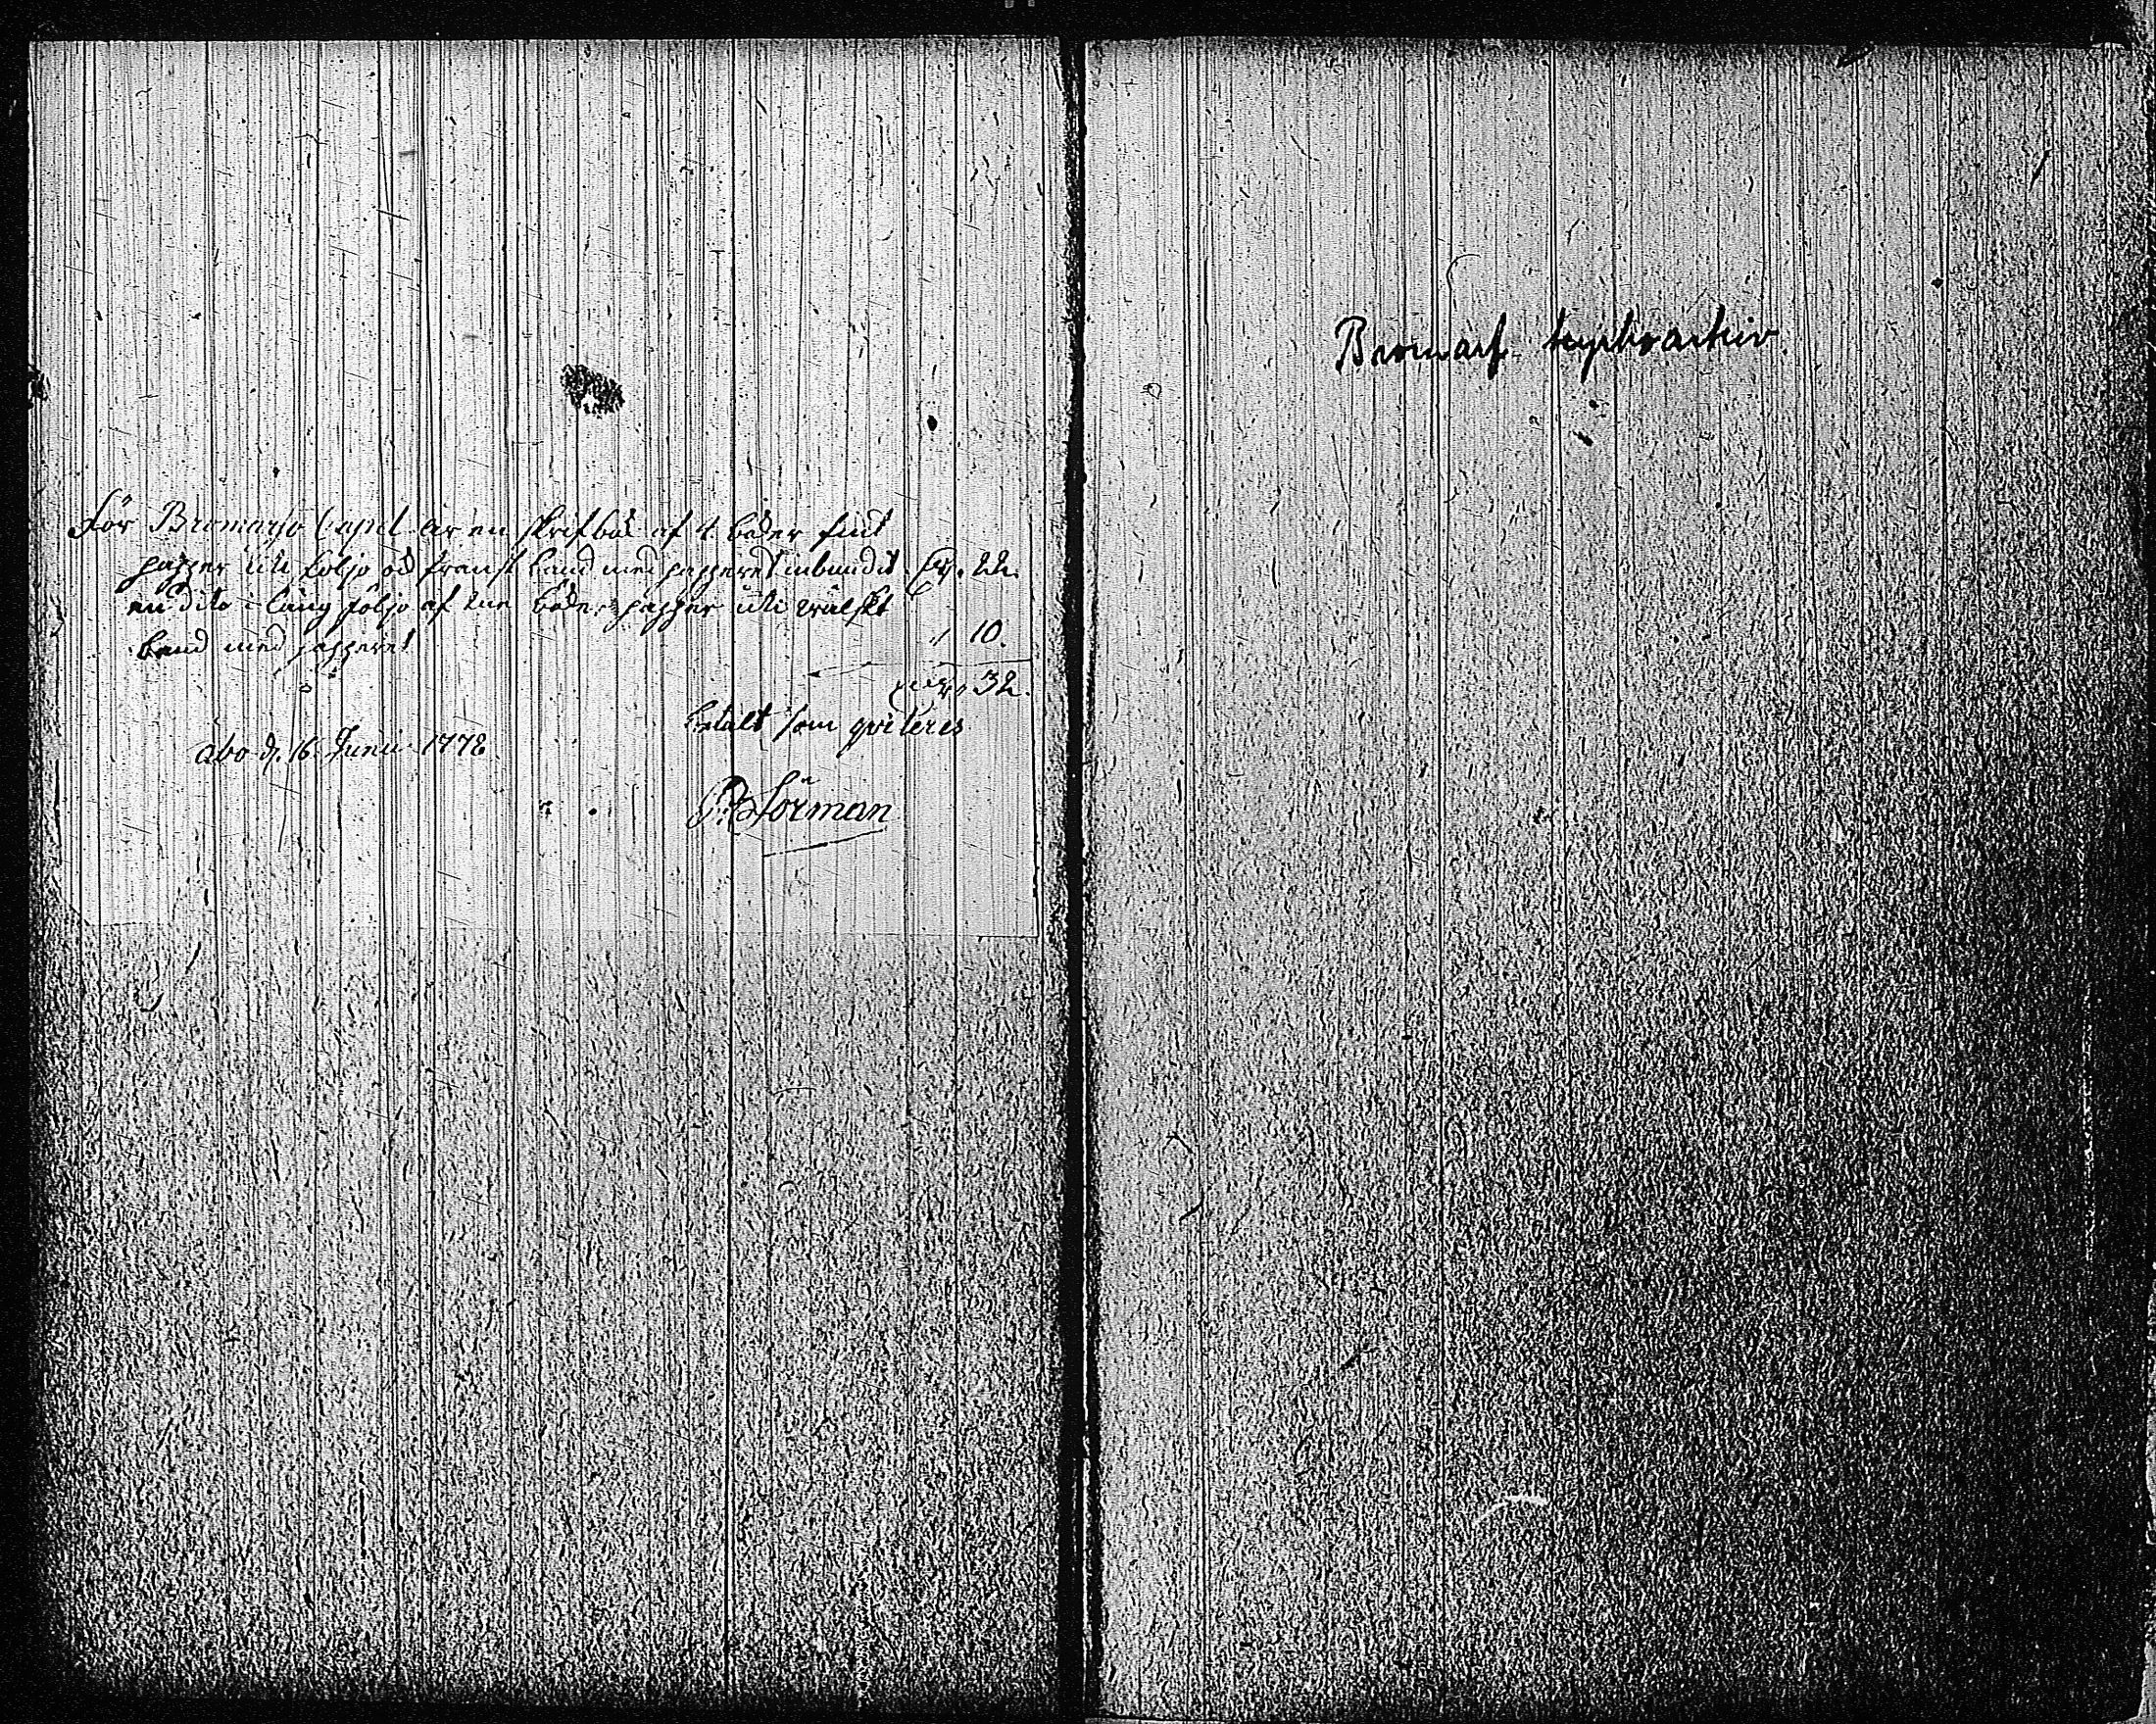 För Bromarfs Capel är en skrifbok af 4 böker fint
papper uti foljo och fransk band med papperet inbundit 22.
en dito i lång följo af tue böker papper uti wälskt
band med papperet 10.
32.
betalt som qviteres
Åbo d. 16 Junii 1778
Störman
Bromarf kyrkoarkiv